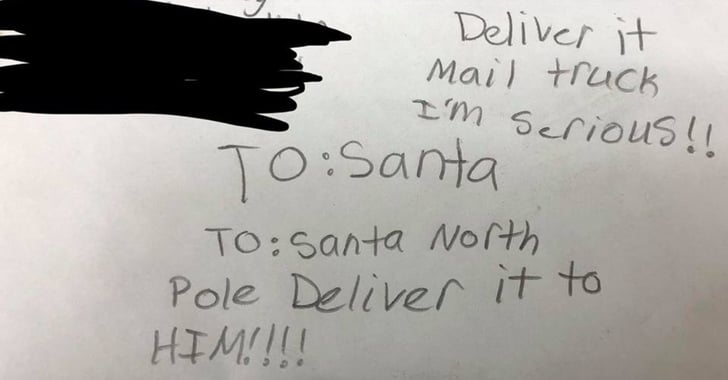 Deliver it
Mail truck
I'm serious!!
TO: Santa
TO: Santa North
Pole Deliver it to
HIM!!!!